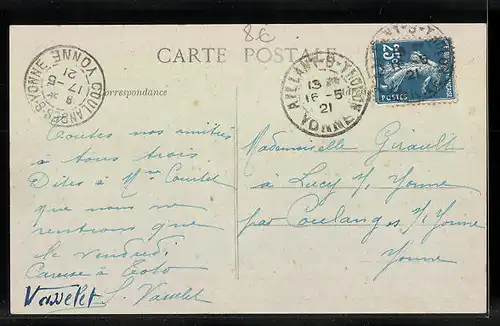 8€
CARTE POSTALE
Correspondance
COULANGES-S-YONNE YONNE
8
17-5
21
AILLANT-S-THOLON YONNE
13
16-5
21
25
POSTES
Toutes nos amitiés
à tous trois.
Dites à Mme
que nous ne
rentrons que
le vendredi
Caresse à Toto
S. Vasselet
Vasselet
Mademoiselle Girault
à Lucy s/ Yonne
par Coulanges s/ Yonne
Yonne